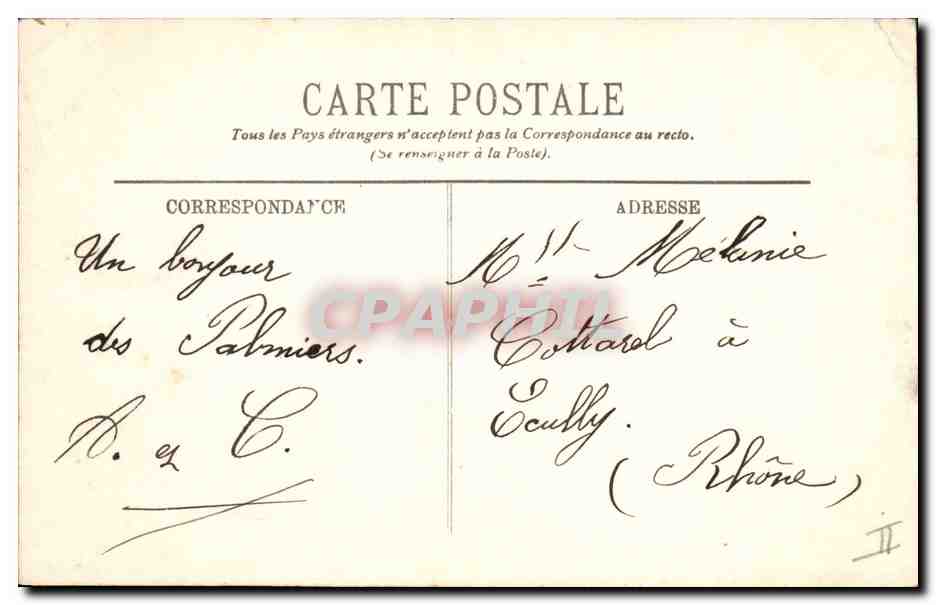 CARTE POSTALE
Tous les Pays étrangers n'acceptent pas la Correspondance au recto.
(Se renseigner à la Poste).
CORRESPONDANCE
Un bonjour
des Palmiers.
A. et C.
ADRESSE
Mlle Mélanie
Cottarel à
Écully.
(Rhône)
II
CPAPHIL